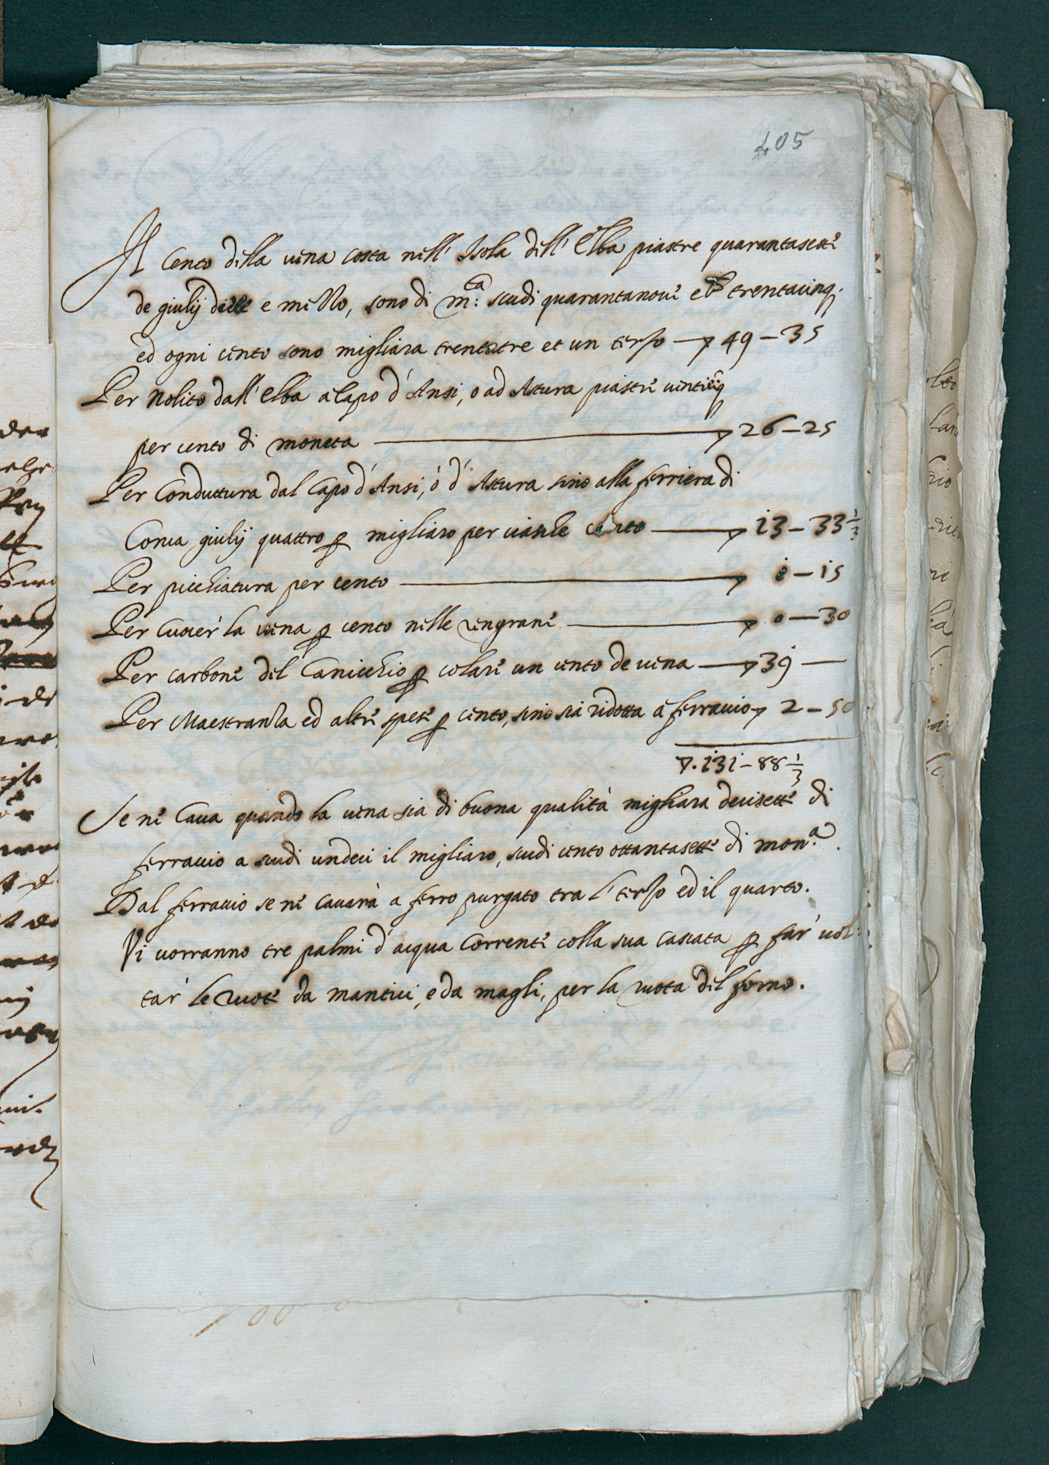 405
Il Cento della vena costa nell' Isola dell' Elba piastre quarantasette
de giulij dieci e mezzo, sono di m.ta scudi quarantanove e trentacinq.
ed ogni cento sono migliara trentatre et un terzo — 49 – 35
Per Nolito dall' Elba a Capo d'Ansi, o ad Astura piastre
per cento di moneta — 26 – 25
Per Conduttura dal Capo d'Ansi, ò d'Astura sino alla ferriera di
Conca giulij quattro p migliaro per cento — 13 – 33 1/3
Per picchiatura per cento — i – i5
Per Cuocer la vena p cento nelle ringrane — 0 – 30
Per carbone del Canicchio p colare un cento de vena — 39 —
Per Maestranza ed altre spese p cento, sino sia ridotta a ferraccio 2 – 50
▽. i3i – 88 1/3
Se ne Cava quando la vena sia di buona qualità migliara decisette di
ferraccio a scudi undeci il migliaro, scudi cento ottantasette di mon.a
Dal ferraccio se ne cavarà a ferro purgato tra l' terzo ed il quarto.
Vi vorranno tre palmi d'acqua Corrente colla sua cascata p far vol-
tar le Ruote da mantici, e da magli, per la ruota del forno.